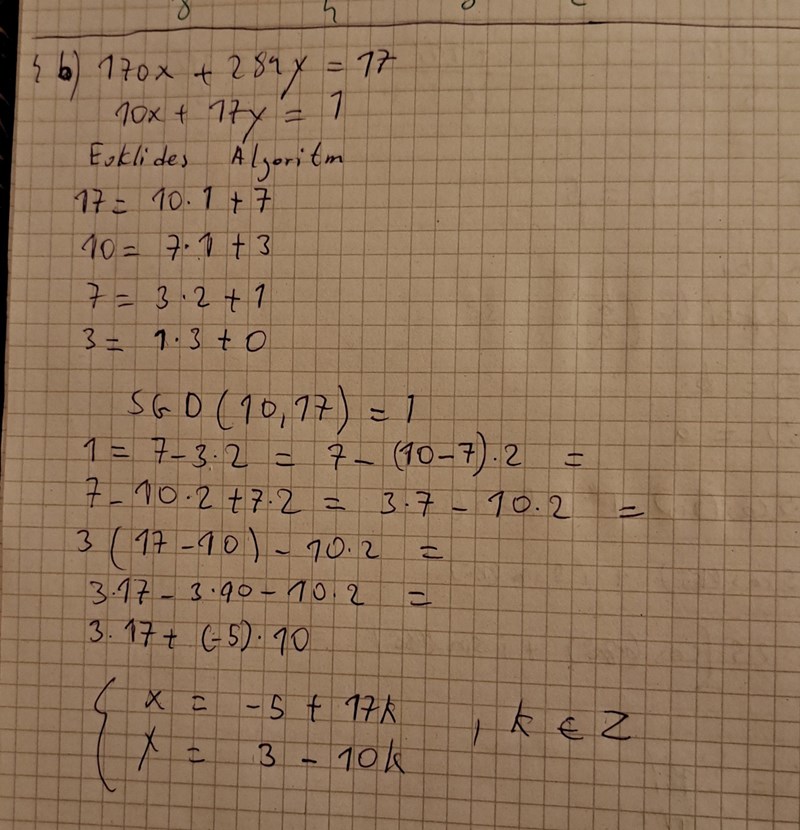 b) 170x + 289y = 17
10x + 17y = 1
Euklides Algoritm
17 = 10·1 + 7
10 = 7·1 + 3
7 = 3·2 + 1
3 = 1·3 + 0
SGD(10,17) = 1
1 = 7-3·2 = 7-(10-7)·2 =
7-10·2+7·2 = 3·7-10·2 =
3(17-10)-10·2 =
3·17-3·10-10·2 =
3·17+(-5)·10
{ x = -5 + 17k
y = 3 - 10k , k ∈ Z